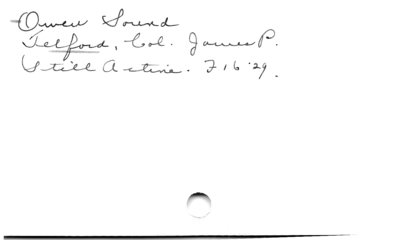 Owen Sound
Telford, Col. James P.
Still Active. F 16 '29.